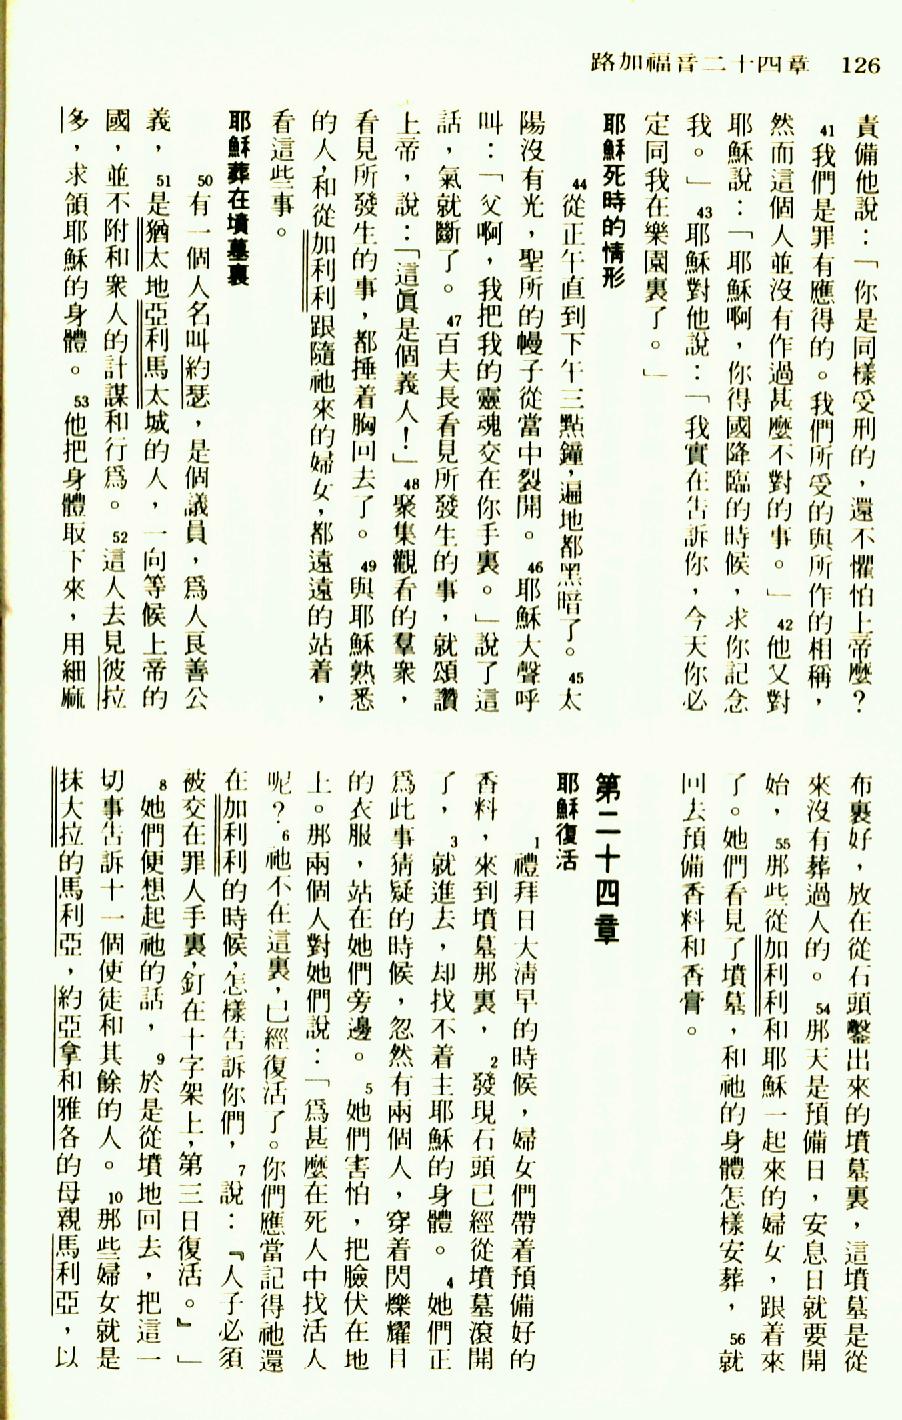 路加福音二十四章　126
責備他說：「你是同樣受刑的，還不懼怕上帝麼？
41我們是罪有應得的。我們所受的與所作的相稱，
然而這個人並沒有作過甚麼不對的事。」42他又對
耶穌說：「耶穌啊，你得國降臨的時候，求你記念
我。」43耶穌對他說：「我實在告訴你，今天你必
定同我在樂園裏了。」
耶穌死時的情形
44從正午直到下午三點鐘，遍地都黑暗了。45太
陽沒有光，聖所的幔子從當中裂開。46耶穌大聲呼
叫：「父啊，我把我的靈魂交在你手裏。」說了這
話，氣就斷了。47百夫長看見所發生的事，就頌讚
上帝，說：「這眞是個義人！」48聚集觀看的羣衆，
看見所發生的事，都捶着胸回去了。49與耶穌熟悉
的人，和從加利利跟隨祂來的婦女，都遠遠的站着，
看這些事。
耶穌葬在墳墓裏
50有一個人名叫約瑟，是個議員，爲人良善公
義，51是猶太地亞利馬太城的人，一向等候上帝的
國，並不附和衆人的計謀和行爲。52這人去見彼拉
多，求領耶穌的身體。53他把身體取下來，用細麻
布裹好，放在從石頭鑿出來的墳墓裏，這墳墓是從
來沒有葬過人的。54那天是預備日，安息日就要開
始，55那些從加利利和耶穌一起來的婦女，跟着來
了。她們看見了墳墓，和祂的身體怎樣安葬，56就
回去預備香料和香膏。
第二十四章
耶穌復活
1禮拜日大淸早的時候，婦女們帶着預備好的
香料，來到墳墓那裏，2發現石頭已經從墳墓滾開
了，3就進去，却找不着主耶穌的身體。4她們正
爲此事猜疑的時候，忽然有兩個人，穿着閃爍耀目
的衣服，站在她們旁邊。5她們害怕，把臉伏在地
上。那兩個人對她們說：「爲甚麼在死人中找活人
呢？6祂不在這裏，已經復活了。你們應當記得祂還
在加利利的時候，怎樣告訴你們，7說：『人子必須
被交在罪人手裏，釘在十字架上，第三日復活。』」
8她們便想起祂的話，9於是從墳地回去，把這一
切事告訴十一個使徒和其餘的人。10那些婦女就是
抹大拉的馬利亞，約亞拿和雅各的母親馬利亞，以